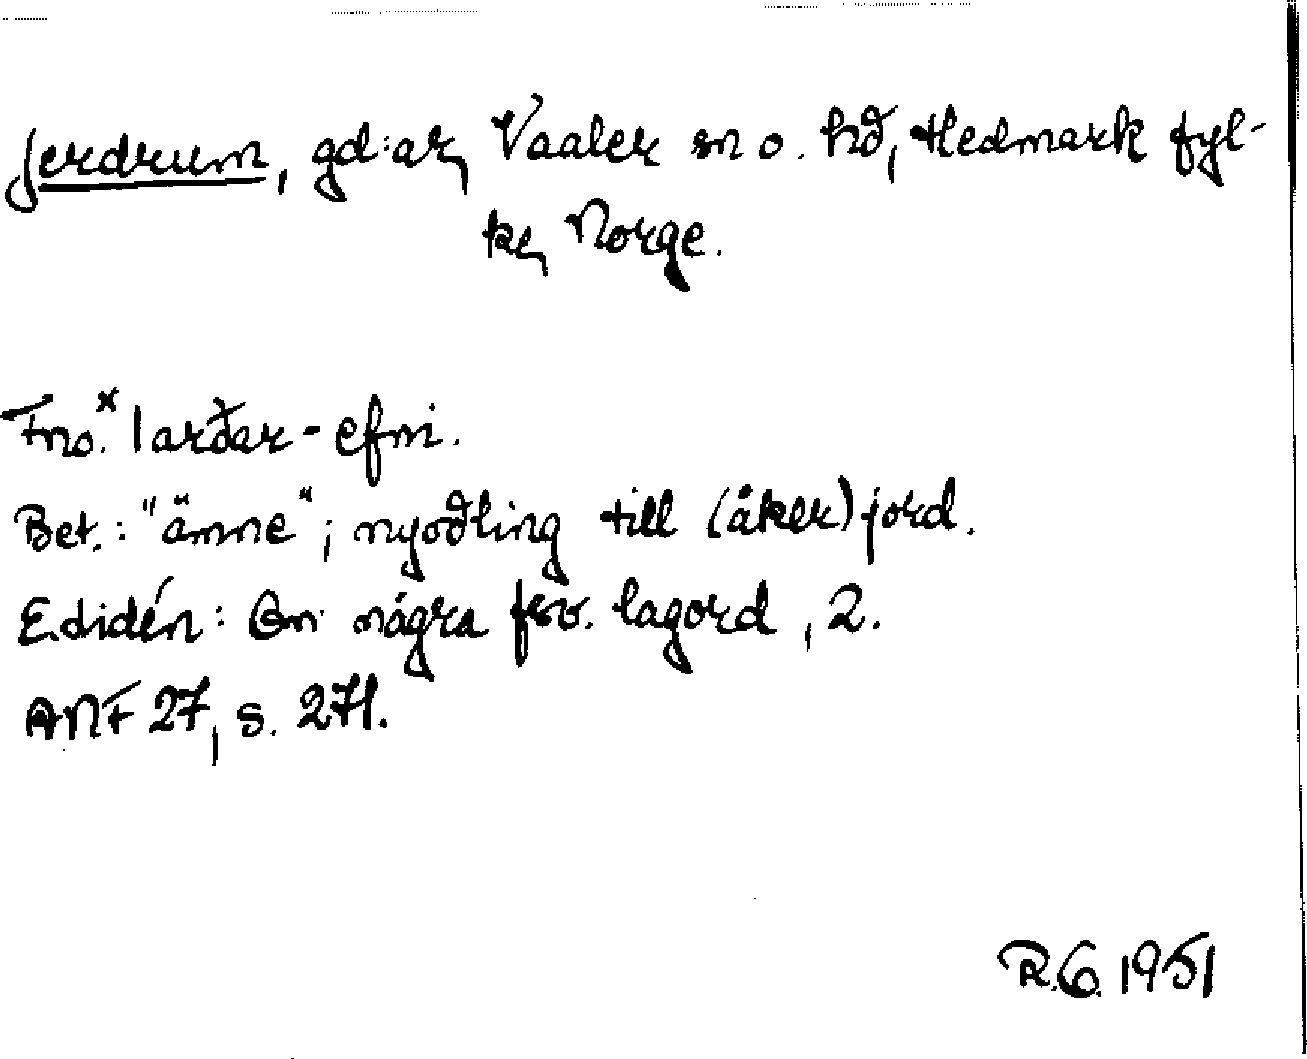 Jerdrum, gd:ar, Vaaler sn o. hd, Hedmark fyl-
ke, Norge.
Fno. *Iarðar-efni.
Bet.: "ämne"; nyodling till (åker)jord.
E. Lidén: Om några fsv. lagord, 2.
ANF 27, s. 271.
R.G. 1951